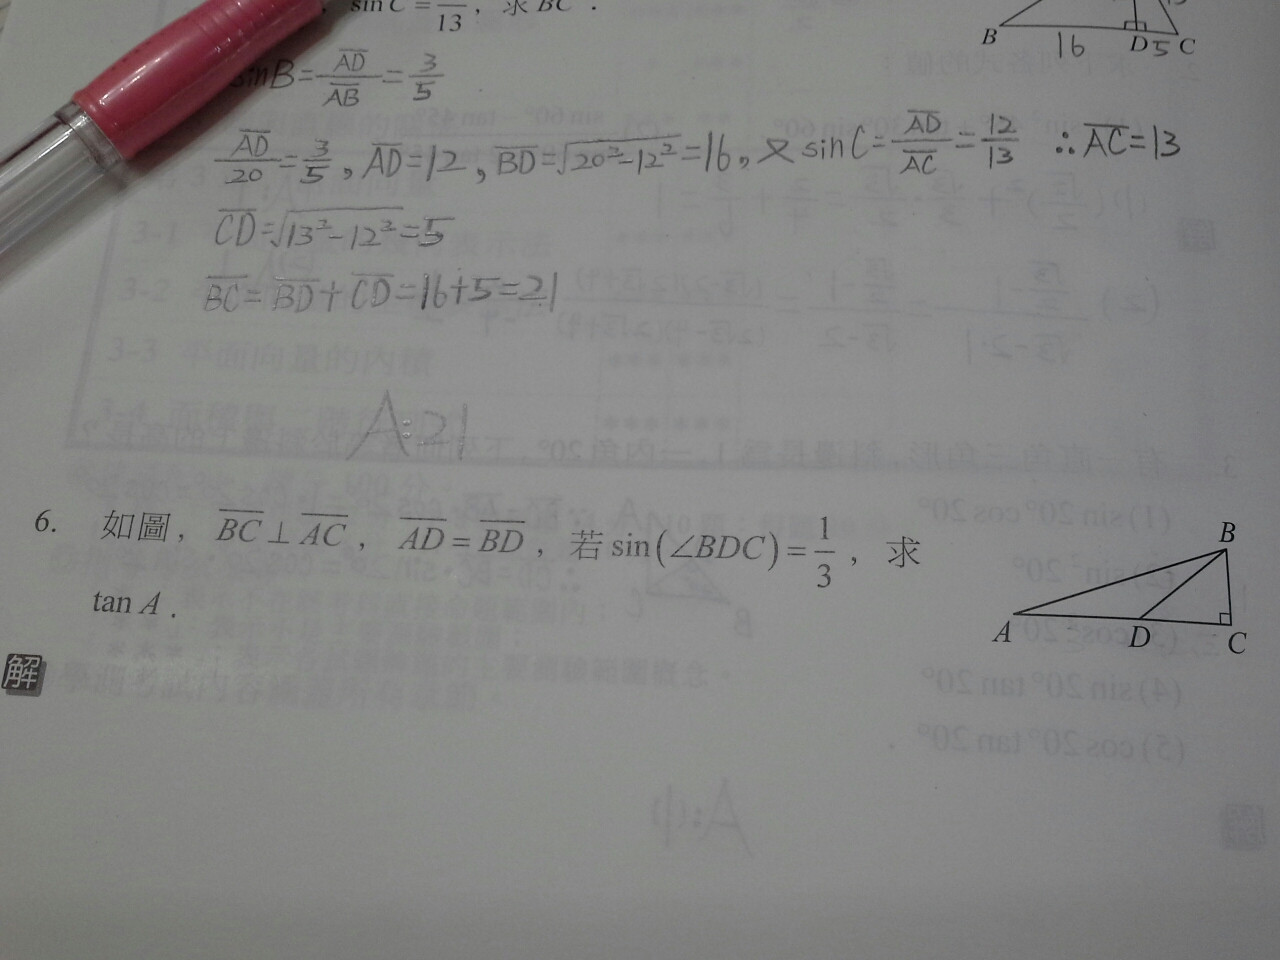 sin C = /13 , 求 BC .
B 16 D 5 C
sinB = AD/AB = 3/5
AD/20 = 3/5 , AD = 12 , BD = √(20²-12²) = 16 , 又 sin C = AD/AC = 12/13 ∴ AC = 13
CD = √(13²-12²) = 5
BC = BD + CD = 16+5 = 21
A:21
6. 如圖, BC ⊥ AC , AD = BD , 若 sin(∠BDC) = 1/3 , 求
tan A .
B
A D C
解